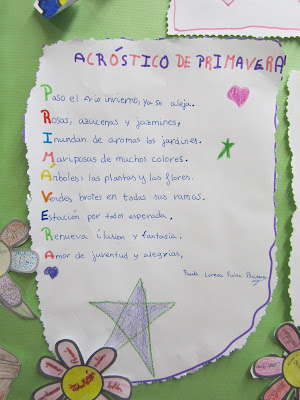 ACRÓSTICO DE PRIMAVERA!
Paso el frio invierno, ya se aleja.
Rosas, azucenas y jazmines,
Inundan de aromas los jardines.
Mariposas de muchos colores.
Árboles: las plantas y las flores.
Verdes brotes en todas sus ramas.
Estación por todos esperada.
Renueva ilusión y fantasia.
Amor de juventud y alegrias,
Lorena